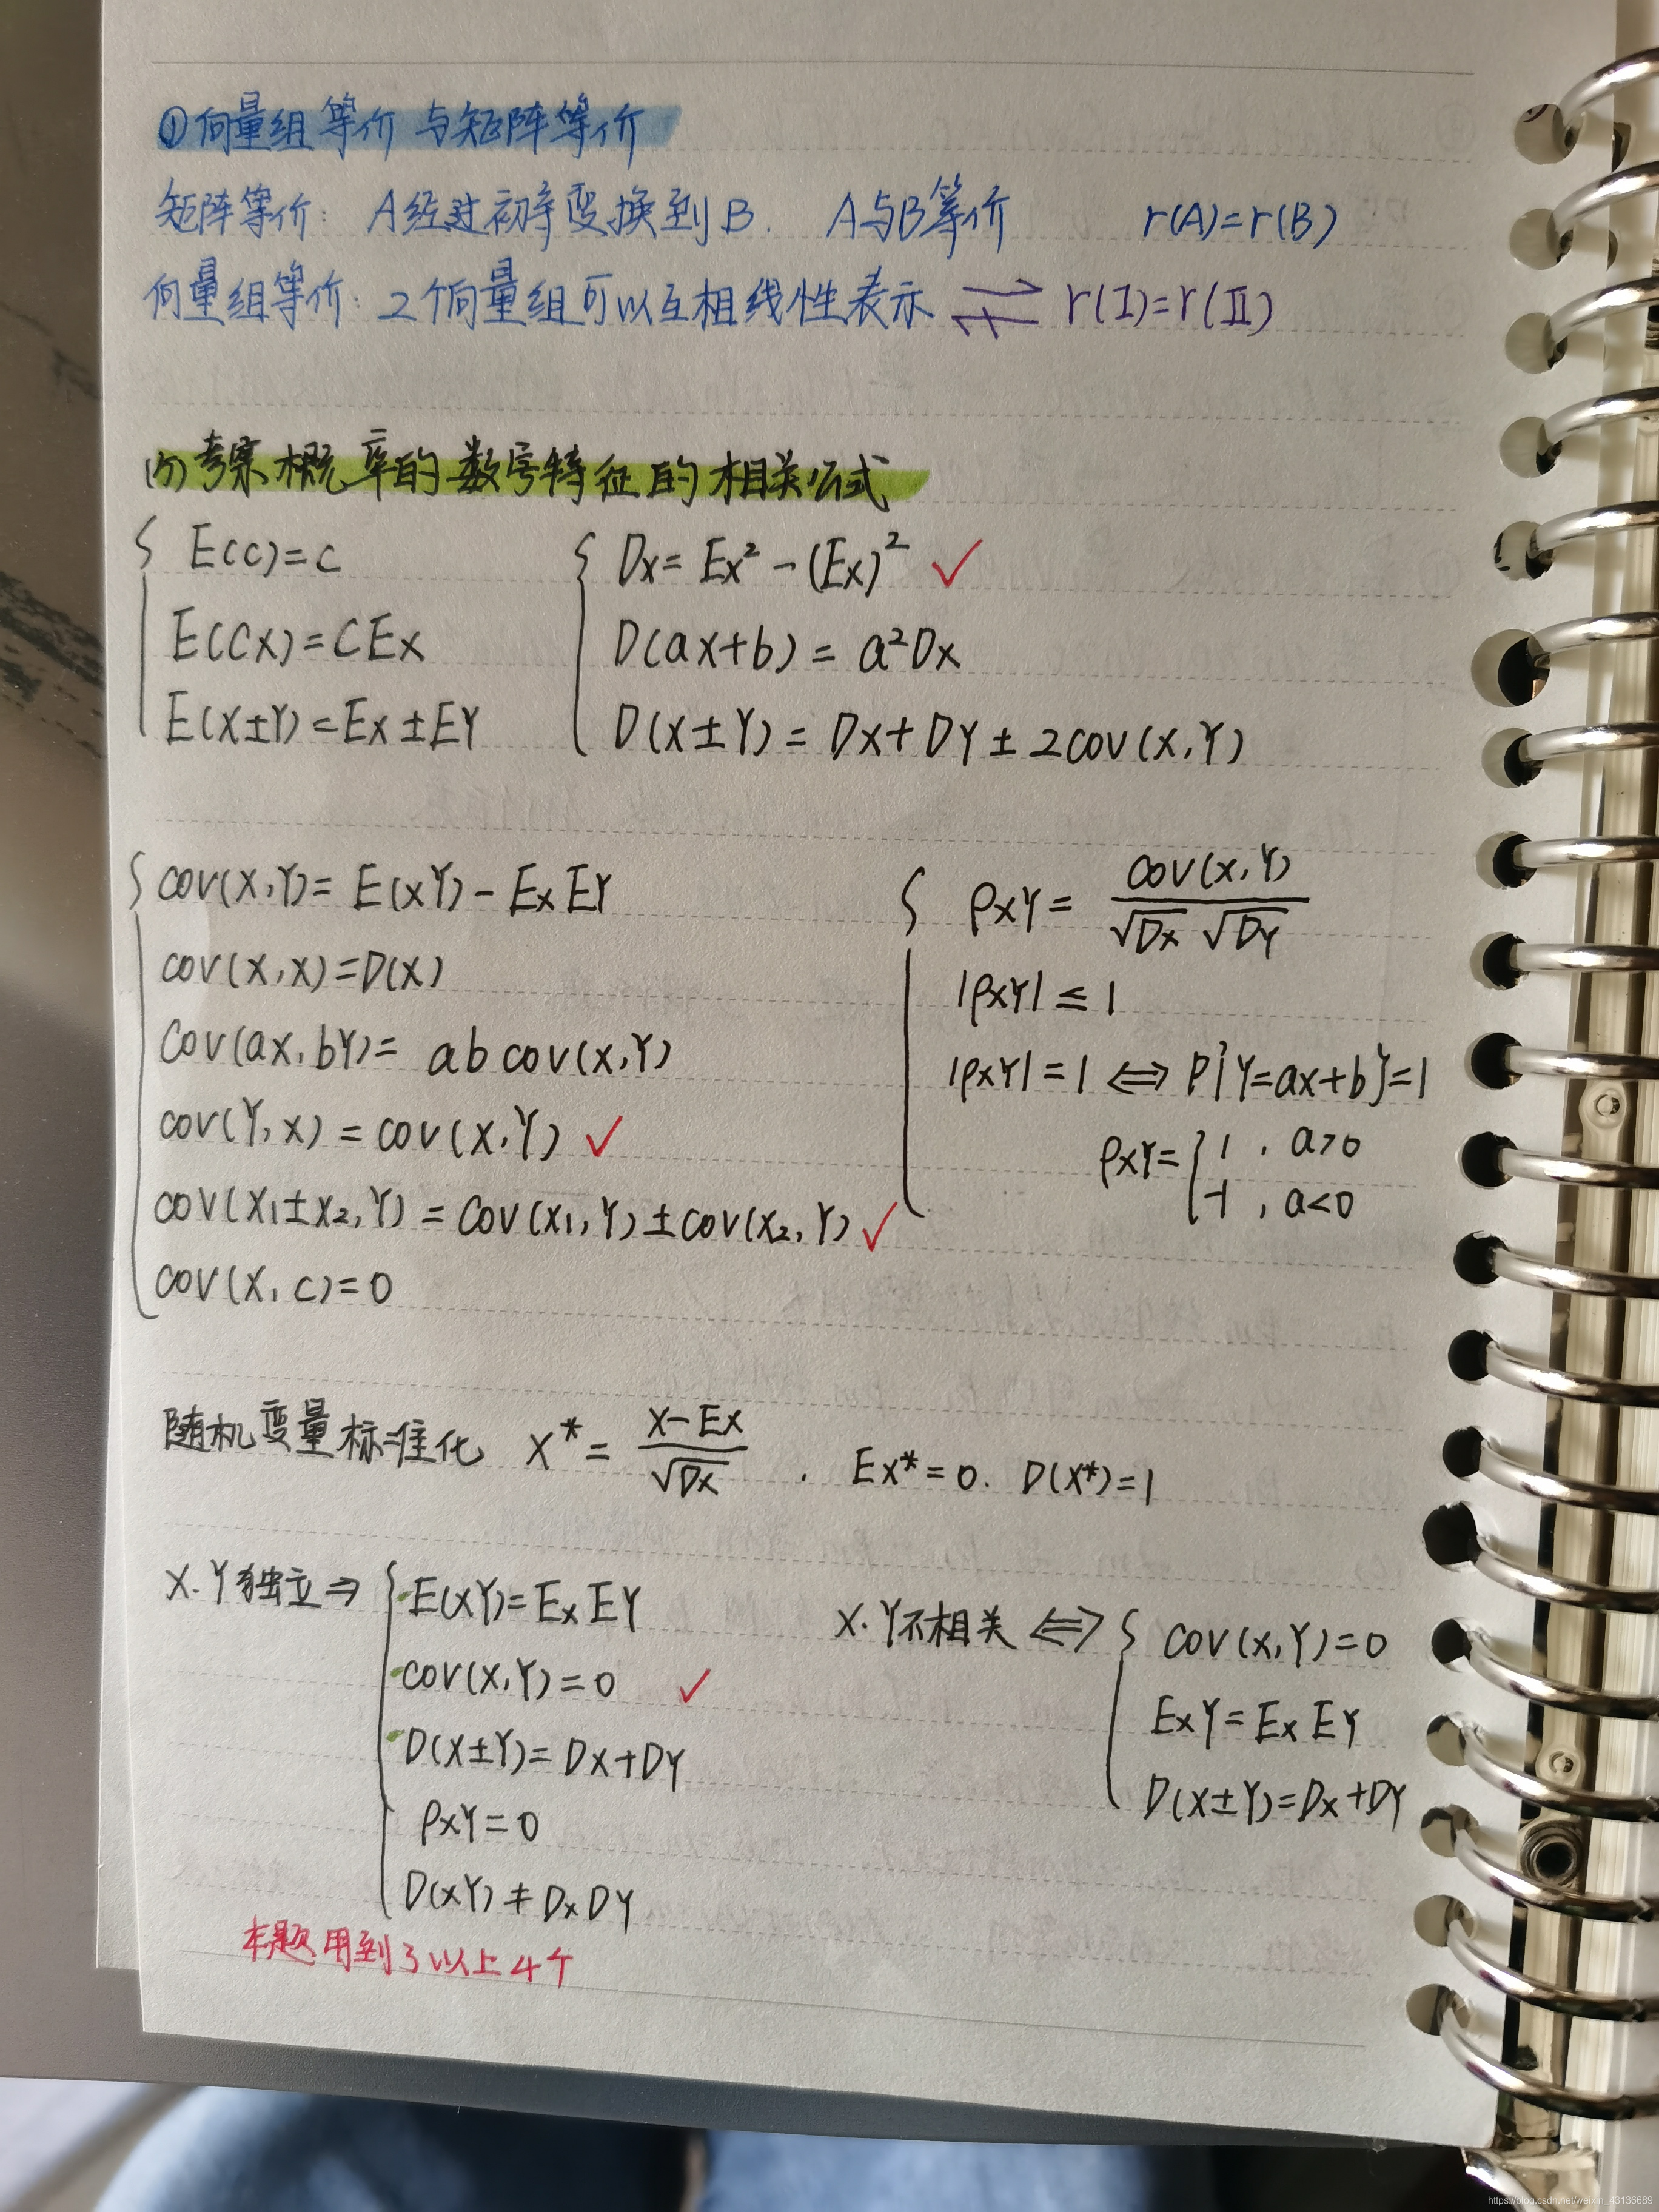 ①向量组等价与矩阵等价
矩阵等价: A经过初等变换到B. A与B等价 r(A)=r(B)
向量组等价: 2个向量组可以互相线性表示 ⇌ r(I)=r(II)
考察概率的数字特征的相关公式
E(C)=C
E(CX)=CEX
E(X±Y)=EX±EY
DX=EX²-(EX)² ✓
D(aX+b)=a²DX
D(X±Y)=DX+DY±2COV(X,Y)
COV(X,Y)=E(XY)-EXEY
COV(X,X)=D(X)
COV(aX,bY)=abCOV(X,Y)
COV(Y,X)=COV(X,Y) ✓
COV(X₁±X₂,Y)=COV(X₁,Y)±COV(X₂,Y) ✓
COV(X,C)=0
ρXY=COV(X,Y)/√DX √DY
|ρXY|≤1
|ρXY|=1⇔P{Y=aX+b}=1
ρXY={1, a>0
-1, a<0
随机变量标准化 X*=X-EX/√DX , EX*=0. D(X*)=1
X.Y独立⇒
E(XY)=EXEY
COV(X,Y)=0 ✓
D(X±Y)=DX+DY
ρXY=0
D(XY)≠DXDY
X.Y不相关⇔
COV(X,Y)=0
EXY=EXEY
D(X±Y)=DX+DY
本题用到了以上4个
https://blog.csdn.net/weixin_43136689